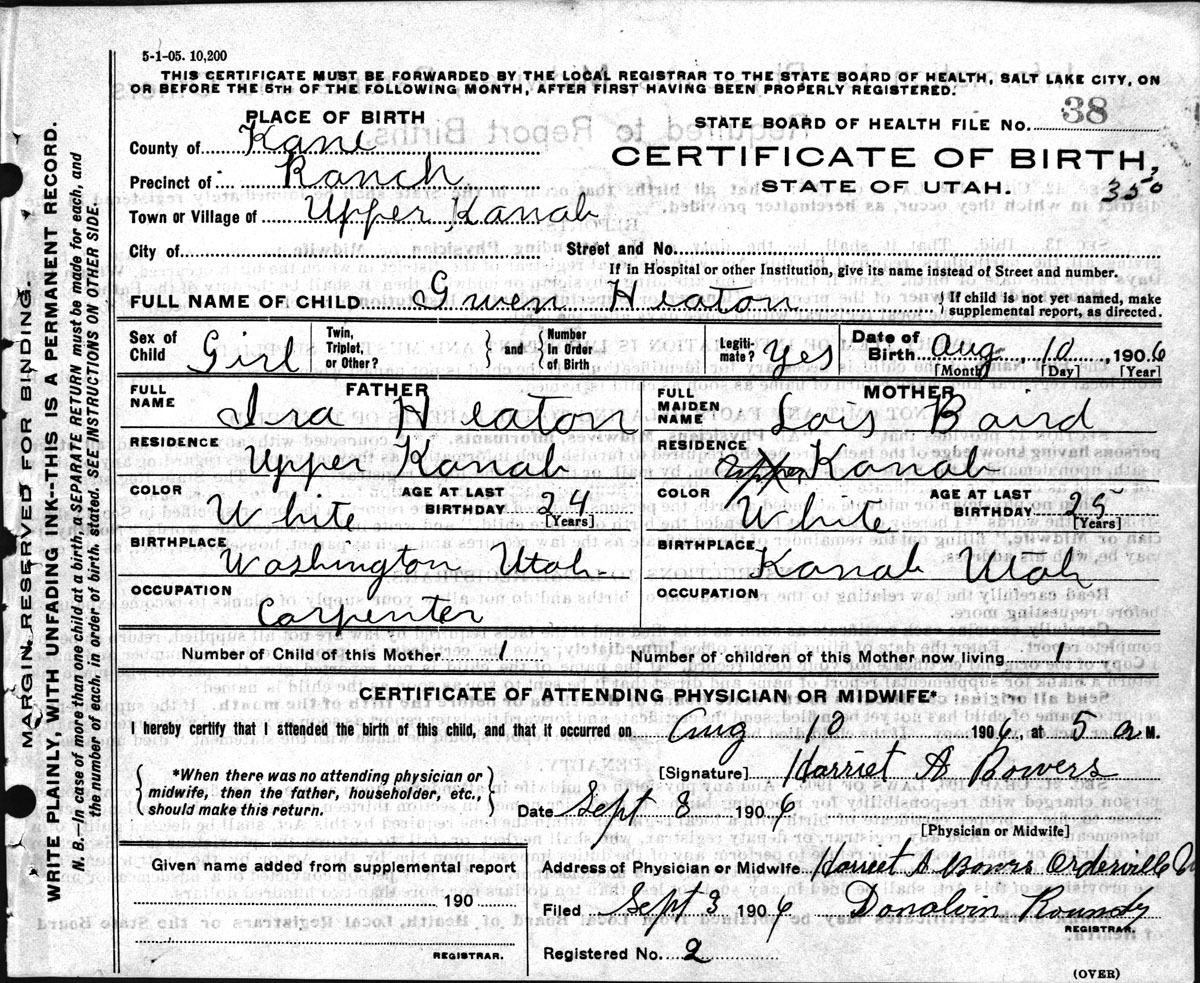 5-1-05. 10,200
THIS CERTIFICATE MUST BE FORWARDED BY THE LOCAL REGISTRAR TO THE STATE BOARD OF HEALTH, SALT LAKE CITY, ON
OR BEFORE THE 5TH OF THE FOLLOWING MONTH, AFTER FIRST HAVING BEEN PROPERLY REGISTERED.
PLACE OF BIRTH
STATE BOARD OF HEALTH FILE NO. 38
County of Kane
CERTIFICATE OF BIRTH,
Precinct of Ranch
STATE OF UTAH.
Town or Village of Upper Kanab
City of
Street and No.
If in Hospital or other Institution, give its name instead of Street and number.
FULL NAME OF CHILD Gwen Heaton { If child is not yet named, make supplemental report, as directed.
Sex of Child Girl Twin, Triplet, or Other? } and { Number In Order of Birth Legiti-mate? Yes Date of Birth Aug 10, 1906
[Month] [Day] [Year]
FATHER MOTHER
FULL NAME Ira Heaton FULL MAIDEN NAME Lois Baird
RESIDENCE Upper Kanab RESIDENCE Upper Kanab
COLOR White AGE AT LAST BIRTHDAY 24 [Years] COLOR White AGE AT LAST BIRTHDAY 25 [Years]
BIRTHPLACE Washington Utah BIRTHPLACE Kanab Utah
OCCUPATION Carpenter OCCUPATION
Number of Child of this Mother 1 Number of children of this Mother now living 1
CERTIFICATE OF ATTENDING PHYSICIAN OR MIDWIFE*
I hereby certify that I attended the birth of this child, and that it occurred on Aug 10 1906, at 5 a M.
{ *When there was no attending physician or midwife, then the father, householder, etc., should make this return. }
[Signature] Harriet A Bowers
Date Sept 8 1906
[Physician or Midwife]
Given name added from supplemental report
190
REGISTRAR.
Address of Physician or Midwife Harriet A Bowers Orderville
Filed Sept 3 1906 Donalvin Roundy
REGISTRAR.
Registered No. 2
(OVER)
MARGIN RESERVED FOR BINDING.
WRITE PLAINLY, WITH UNFADING INK--THIS IS A PERMANENT RECORD.
N. B.--In case of more than one child at a birth, a SEPARATE RETURN must be made for each, and
the number of each, in order of birth, stated. SEE INSTRUCTIONS ON OTHER SIDE.